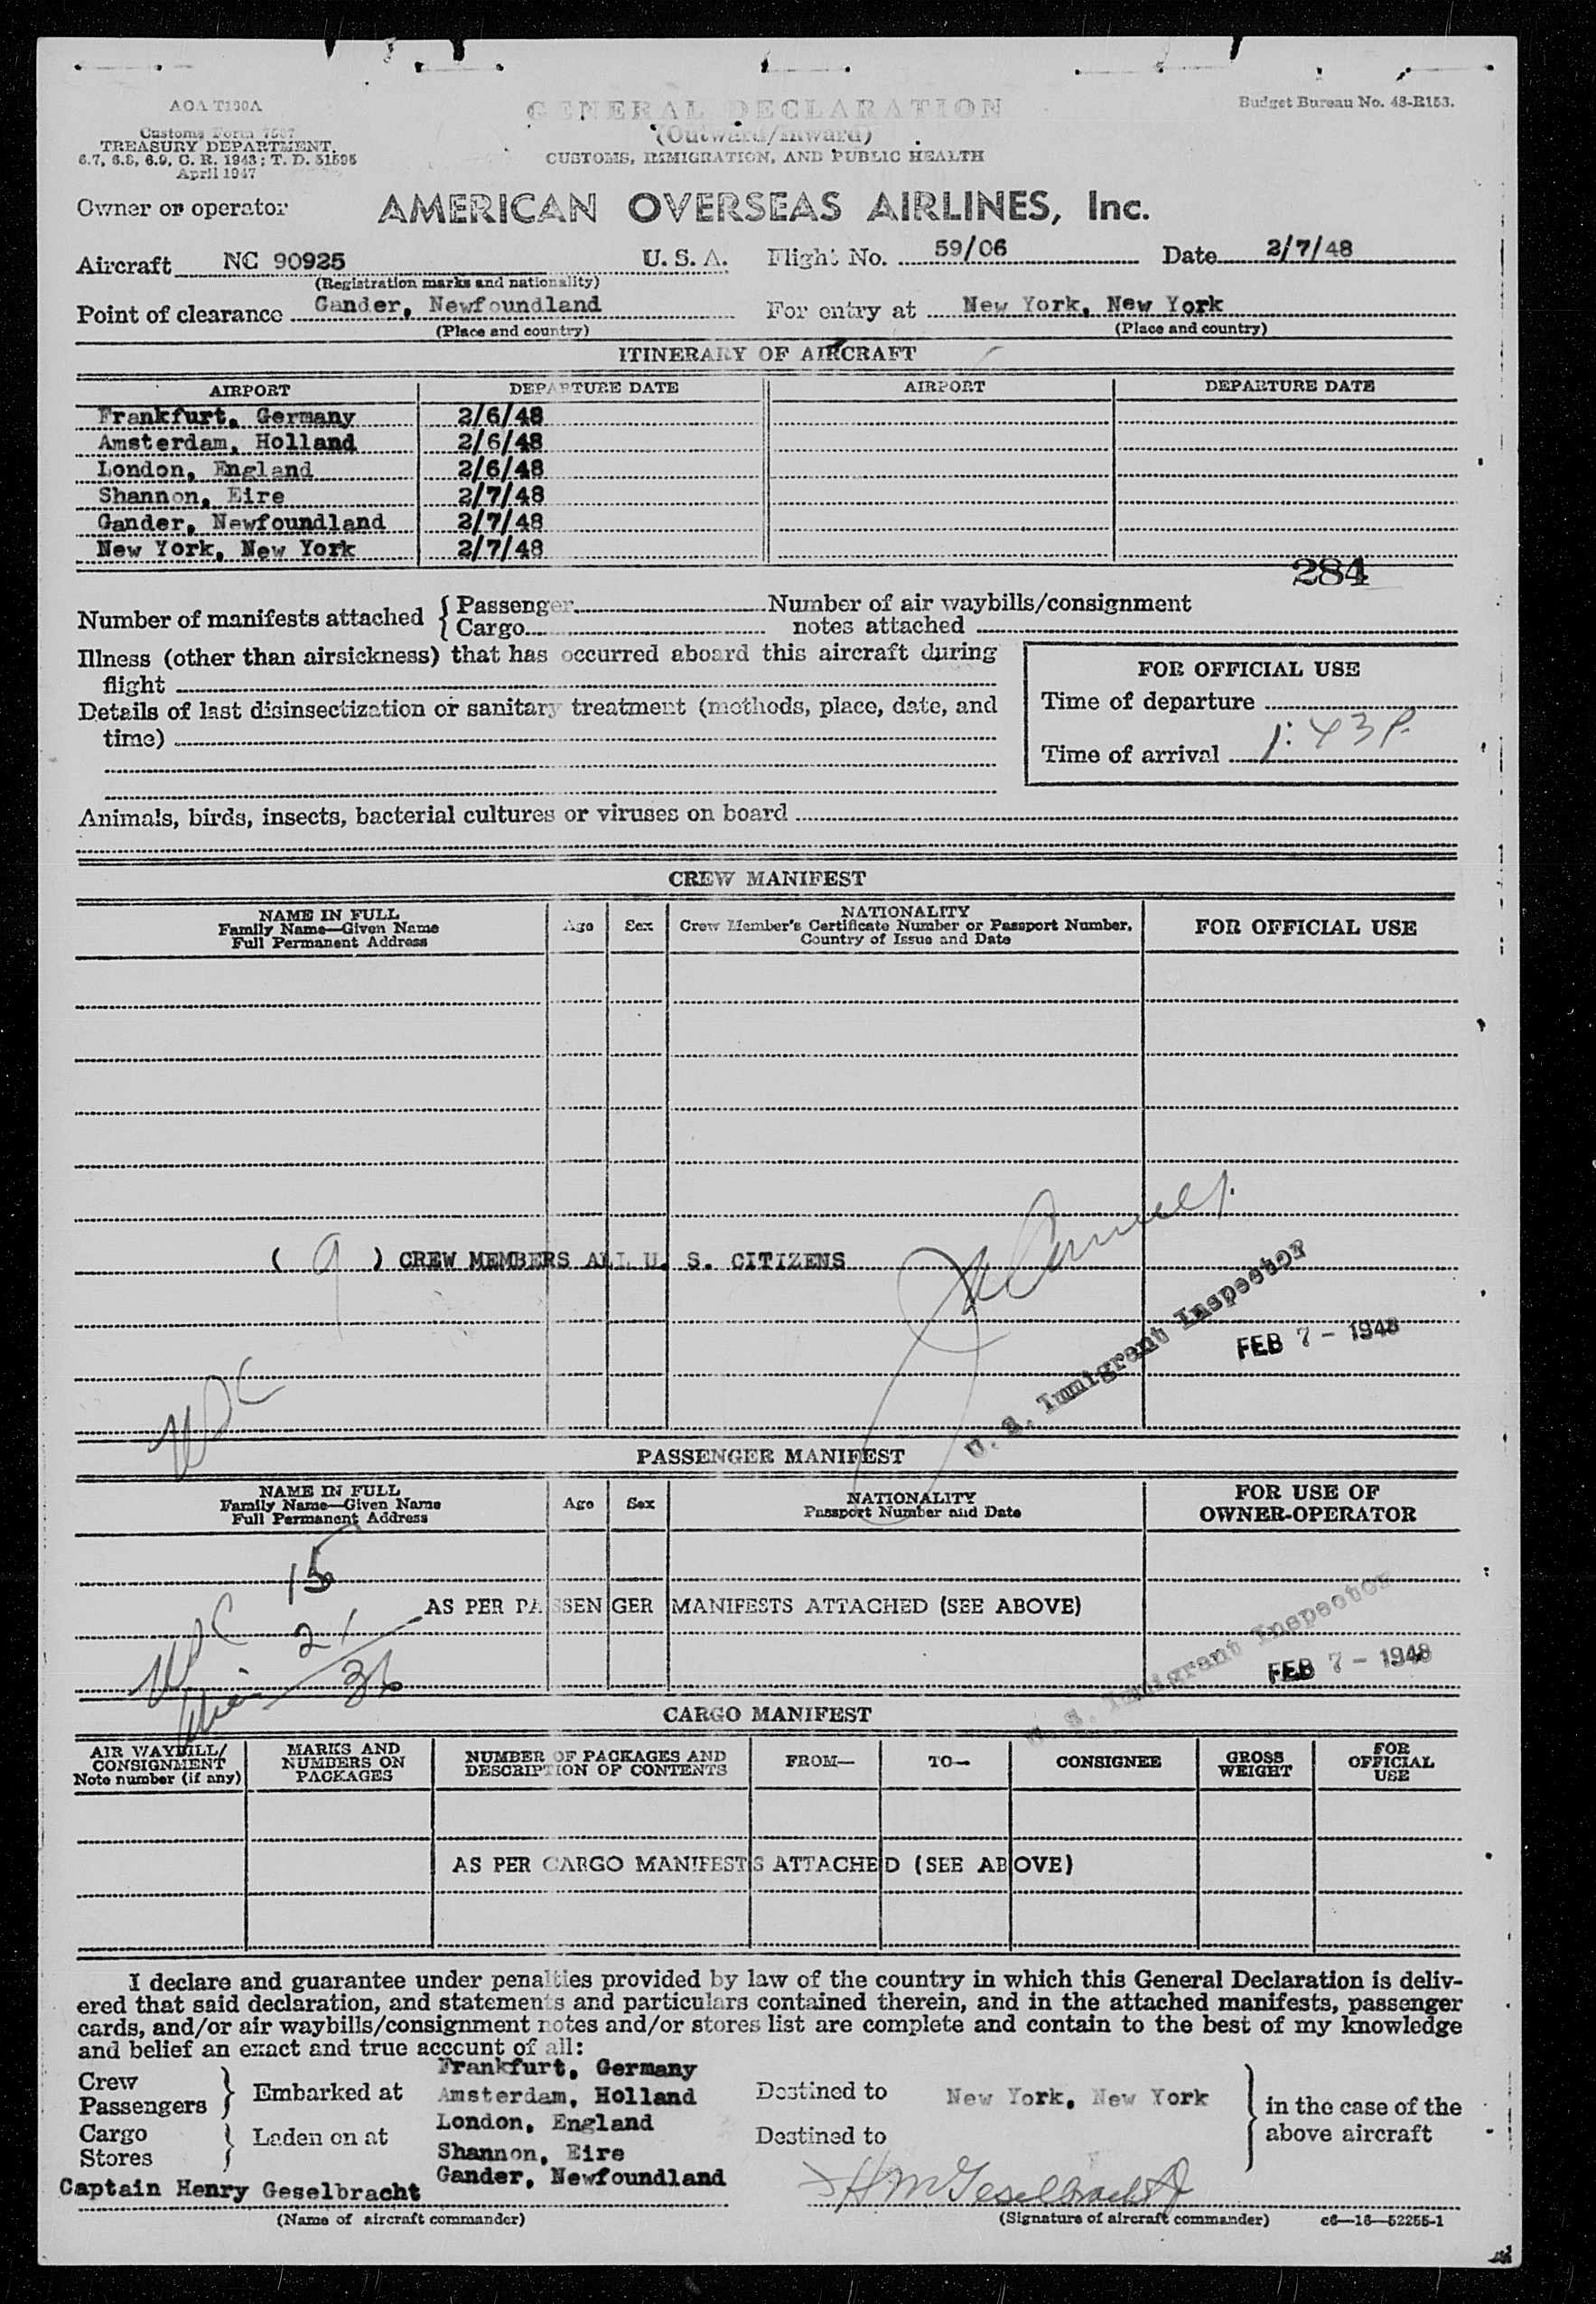 AOA T100A
Customs Form 7507
TREASURY DEPARTMENT
6.7, 6.8, 6.9, C. R. 1943; T. D. 51595
April 1947
GENERAL DECLARATION
(Outward/Inward)
CUSTOMS, IMMIGRATION, AND PUBLIC HEALTH
Budget Bureau No. 48-R153.
Owner or operator AMERICAN OVERSEAS AIRLINES, Inc.
Aircraft NC 90925 U. S. A. Flight No. 59/06 Date 2/7/48
(Registration marks and nationality)
Point of clearance Gander, Newfoundland For entry at New York, New York
(Place and country) (Place and country)
ITINERARY OF AIRCRAFT
AIRPORT DEPARTURE DATE AIRPORT DEPARTURE DATE
Frankfurt, Germany 2/6/48
Amsterdam, Holland 2/6/48
London, England 2/6/48
Shannon, Eire 2/7/48
Gander, Newfoundland 2/7/48
New York, New York 2/7/48
284
Number of manifests attached { Passenger Number of air waybills/consignment
Cargo notes attached
Illness (other than airsickness) that has occurred aboard this aircraft during
flight
Details of last disinsectization or sanitary treatment (methods, place, date, and
time)
FOR OFFICIAL USE
Time of departure
Time of arrival 1:43 P.
Animals, birds, insects, bacterial cultures or viruses on board
CREW MANIFEST
NAME IN FULL
Family Name—Given Name
Full Permanent Address
Age
Sex
NATIONALITY
Crew Member's Certificate Number or Passport Number,
Country of Issue and Date
FOR OFFICIAL USE
( 9 ) CREW MEMBERS ALL U. S. CITIZENS
U. S. Immigrant Inspector
FEB 7 - 1948
PASSENGER MANIFEST
NAME IN FULL
Family Name—Given Name
Full Permanent Address
Age
Sex
NATIONALITY
Passport Number and Date
FOR USE OF
OWNER-OPERATOR
15
AS PER PASSENGER MANIFESTS ATTACHED (SEE ABOVE)
21
36
U. S. Immigrant Inspector
FEB 7 - 1948
CARGO MANIFEST
AIR WAYBILL/
CONSIGNMENT
Note number (if any)
MARKS AND
NUMBERS ON
PACKAGES
NUMBER OF PACKAGES AND
DESCRIPTION OF CONTENTS
FROM—
TO—
CONSIGNEE
GROSS
WEIGHT
FOR
OFFICIAL
USE
AS PER CARGO MANIFESTS ATTACHED (SEE ABOVE)
I declare and guarantee under penalties provided by law of the country in which this General Declaration is deliv-
ered that said declaration, and statements and particulars contained therein, and in the attached manifests, passenger
cards, and/or air waybills/consignment notes and/or stores list are complete and contain to the best of my knowledge
and belief an exact and true account of all:
Crew
Passengers } Embarked at
Cargo
Stores } Laden on at
Frankfurt, Germany
Amsterdam, Holland
London, England
Shannon, Eire
Gander, Newfoundland
Destined to New York, New York
Destined to
} in the case of the
above aircraft
Captain Henry Geselbracht
(Name of aircraft commander)
HM Geselbracht Jr
(Signature of aircraft commander) c6—16—52255-1